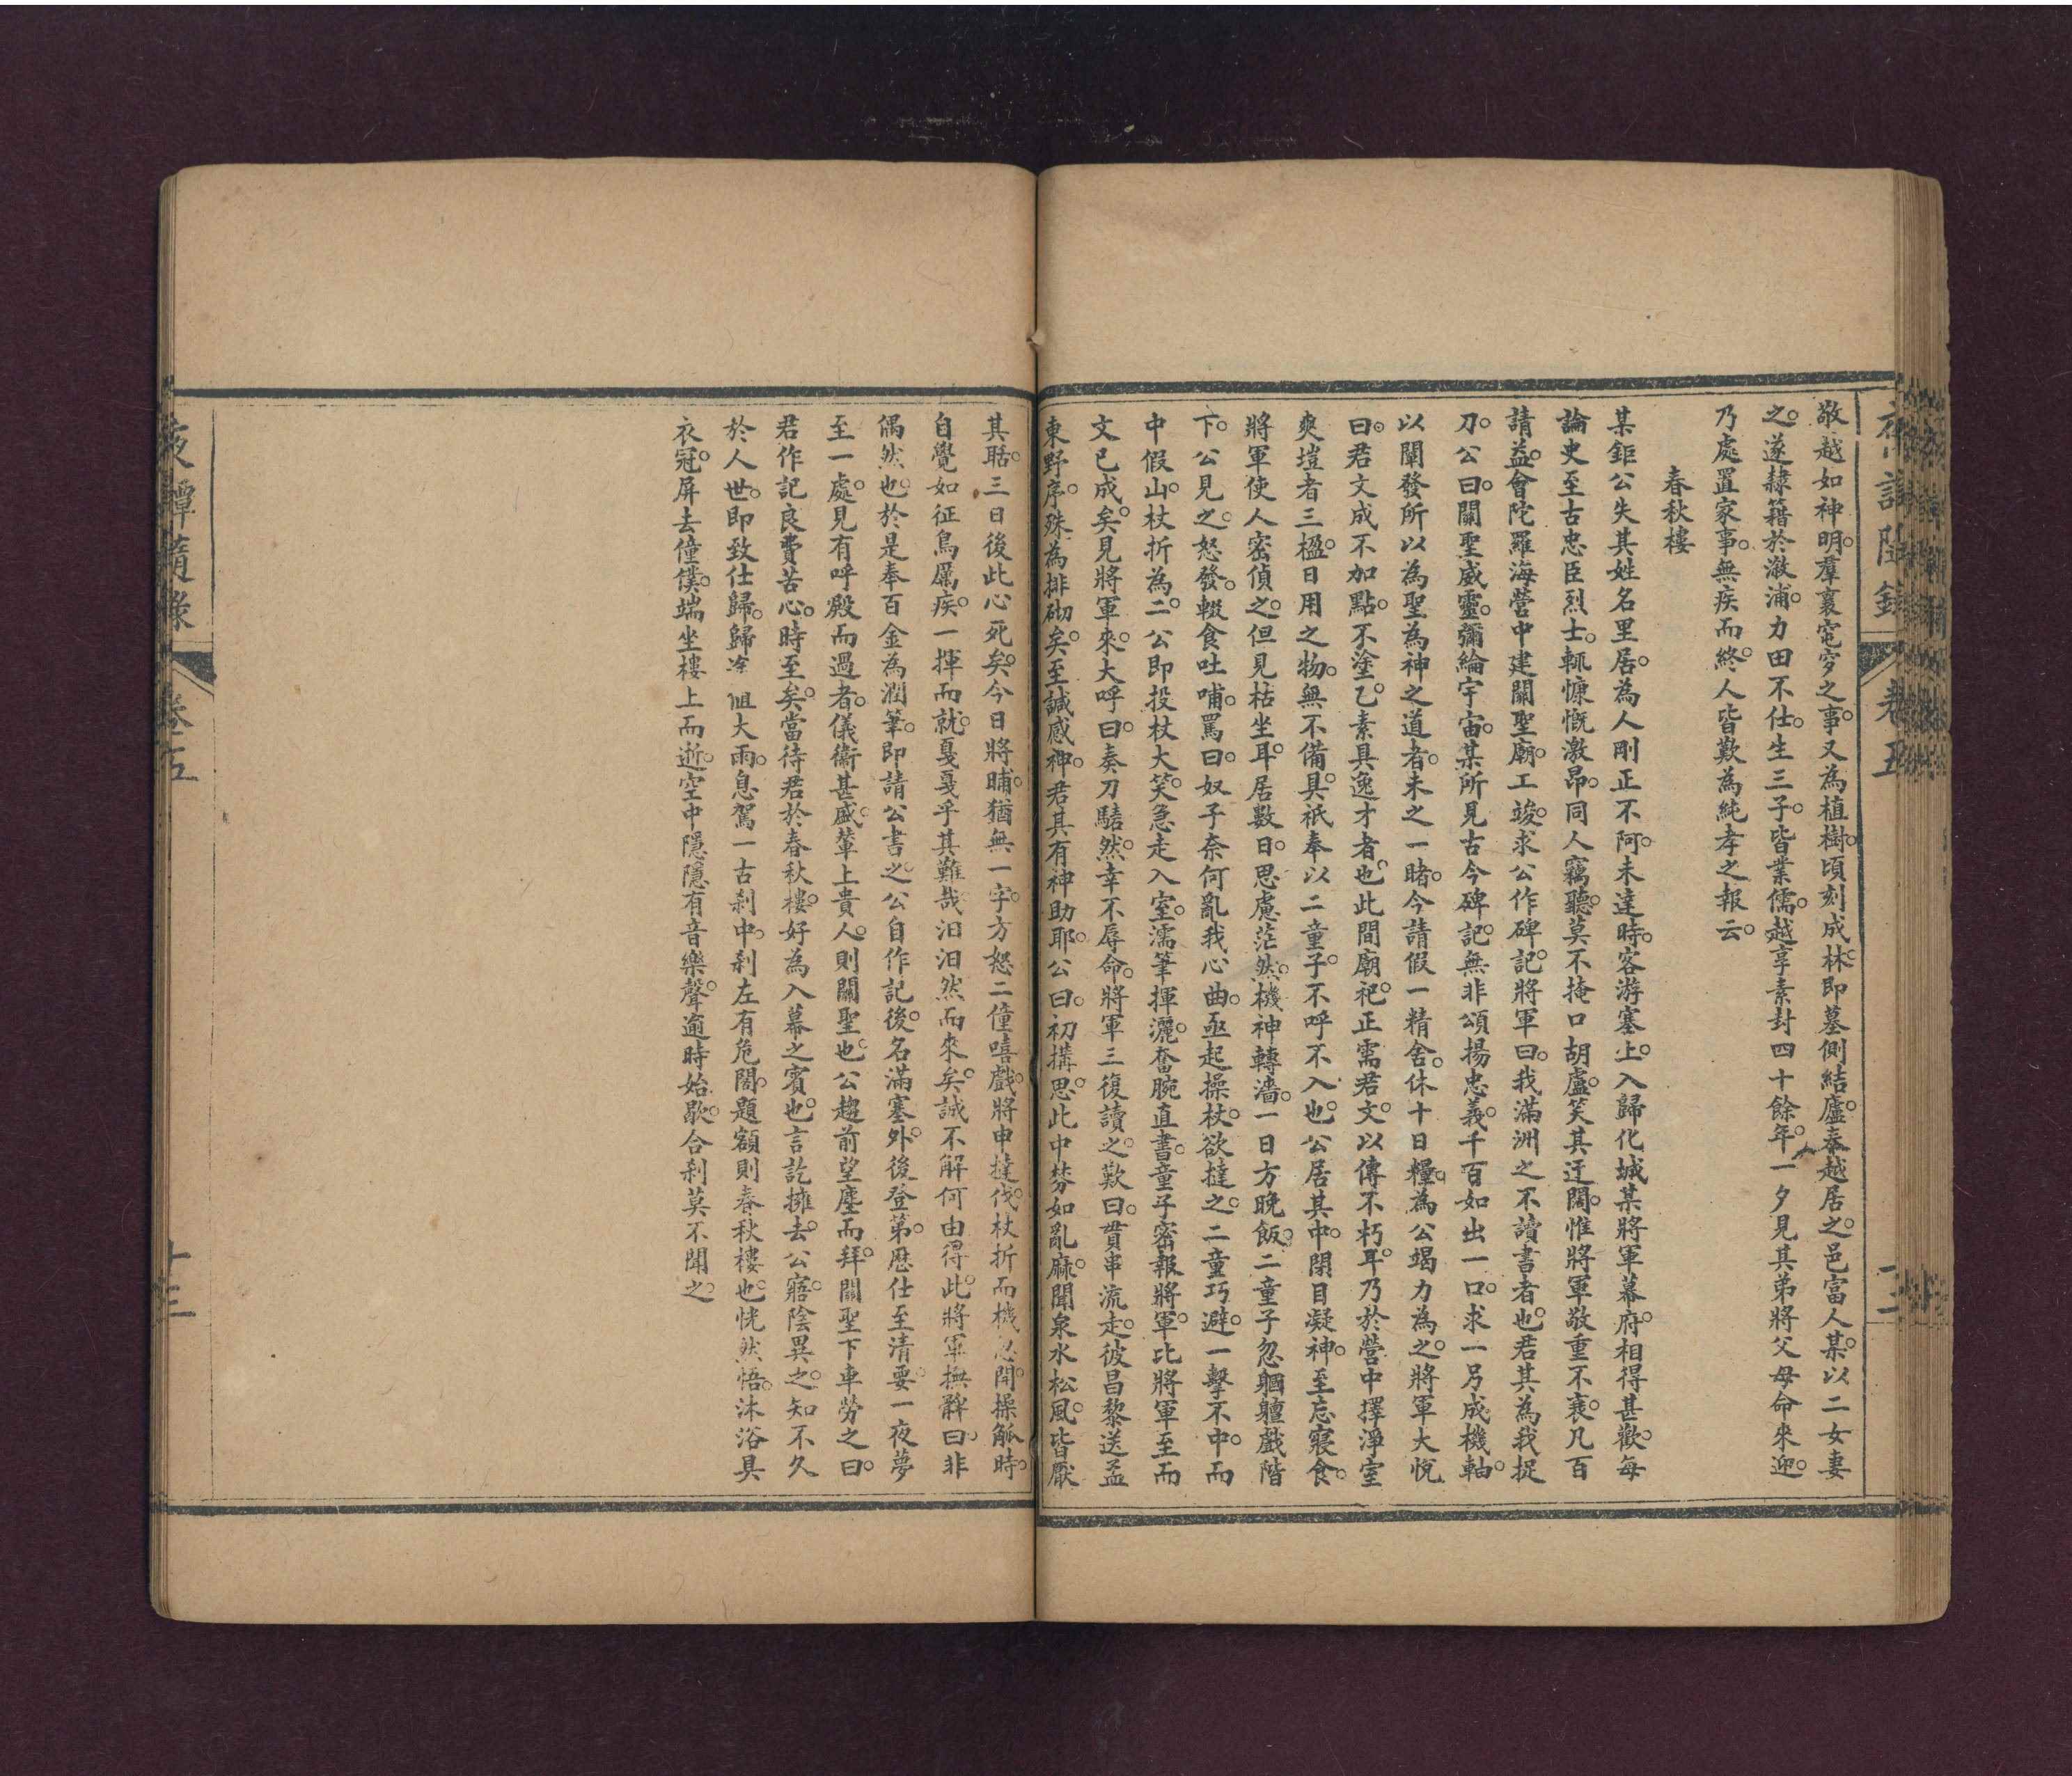 敬越如神明。羣襄窀穸之事。又為植樹。頃刻成林。即墓側結廬。奉越居之。邑富人某。以二女妻
之。遂隸籍於漵浦。力田不仕。生三子。皆業儒。越享素封四十餘年。一夕見其弟將父母命來迎。
乃處置家事。無疾而終。人皆歎為純孝之報云。
春秋樓
某鉅公失其姓名里居。為人剛正不阿。未達時。客游塞上。入歸化城某將軍幕府。相得甚歡。每
論史至古忠臣烈士。輒慷慨激昂。同人竊聽。莫不掩口胡盧。笑其迂闊。惟將軍敬重不衰。凡百
請益。會陀羅海營中建關聖廟。工竣。求公作碑記。將軍曰。我滿洲之不讀書者也。君其為我捉
刀。公曰。關聖威靈。彌綸宇宙。某所見古今碑記。無非頌揚忠義。千百如出一口。求一另成機軸。
以闡發所以為聖為神之道者。未之一睹。今請假一精舍。休十日糧。為公竭力為之。將軍大悅
曰。君文成不加點。不塗乙。素具逸才者也。此間廟祀。正需君文。以傳不朽耳。乃於營中擇淨室
爽塏者三楹。日用之物。無不備具。祇奉以二童子。不呼不入也。公居其中。閉目凝神。至忘寢食。
將軍使人密偵之。但見枯坐耳。居數日。思慮茫然。機神轉濇。一日方晚飯。二童子忽輞軆戲階
下。公見之。怒發。輟食吐哺。罵曰。奴子奈何亂我心曲。亟起操杖。欲撻之。二童巧避。一擊不中。而
中假山。杖折為二。公即投杖大笑。急走入室。濡筆揮灑。奮腕直書。童子密報將軍。比將軍至而
文已成矣。見將軍來。大呼曰。奏刀騞然。幸不辱命。將軍三復讀之。歎曰。貫串流走。彼昌黎送孟
東野序。殊為排砌矣。至諴感神。君其有神助耶。公曰。初搆思。此中棼如亂麻。聞泉水松風。皆厭
其聒。三日後此心死矣。今日將晡。猶無一字。方怒二僮嘻戲。將申撻伐。杖折而機忽開。操觚時。
自覺如征鳥厲疾。一揮而就。戛戛乎其難哉。汩汩然而來矣。誠不解何由得此。將軍撫髀曰。非
偶然也。於是奉百金為潤筆。即請公書之。公自作記後。名滿塞外。後登第。歷仕至清要。一夜夢
至一處。見有呼殿而過者。儀衞甚盛。輦上貴人。則關聖也。公趨前望塵而拜。關聖下車勞之。曰。
君作記良費苦心。時至矣。當待君於春秋樓。好為入幕之賓也。言訖擁去。公寤。陰異之。知不久
於人世。即致仕歸。歸涂俎大雨。息駕一古刹中。刹左有危閣。題額則春秋樓也。恍然悟。沐浴具
衣冠。屏去僮僕。端坐樓上而逝。空中隱隱有音樂聲。逾時始歇。合刹莫不聞之。
夜譚隨錄
卷五
十三